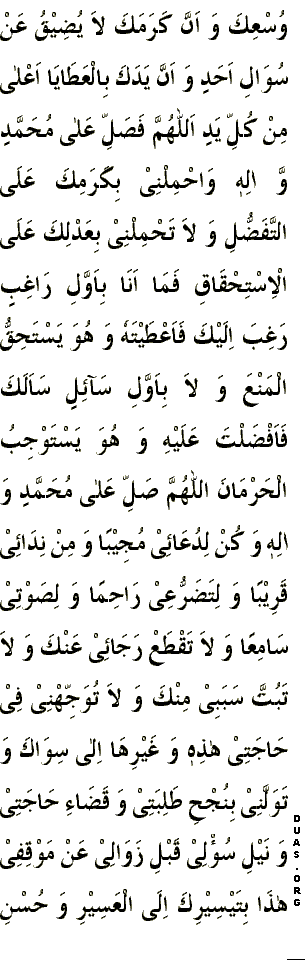 وُسْعِكَ وَ اَنَّ كَرَمَكَ لاَ يُضِيْقُ عَنْ
سُوَالِ اَحَدٍ وَ اَنَّ يَدَكَ بِالْعَطَايَا اَعْلٰى
مِنْ كُلِّ يَدٍ اَللّٰهُمَّ فَصَلِّ عَلٰى مُحَمَّدٍ
وَّ اٰلِهٖ وَاحْمِلْنِىْ بِكَرَمِكَ عَلَى
التَّفَضُّلِ وَ لاَ تَحْمِلْنِىْ بِعَدْلِكَ عَلَى
الْاِسْتِحْقَاقِ فَمَا اَنَا بِاَوَّلِ رَاغِبٍ
رَغِبَ اِلَيْكَ فَاَعْطَيْتَهٗ وَ هُوَ يَسْتَحِقُّ
الْمَنْعَ وَ لاَ بِاَوَّلِ سَآئِلٍ سَاَلَكَ
فَاَفْضَلْتَ عَلَيْهِ وَ هُوَ يَسْتَوْجِبُ
الْحَرْمَانَ اَللّٰهُمَّ صَلِّ عَلٰى مُحَمَّدٍ وَ
اٰلِهٖ وَ كُنْ لِدُعَائِىْ مُجِيْبًا وَ مِنْ نِدَائِىْ
قَرِيْبًا وَ لِتَضَرُّعِىْ رَاحِمًا وَ لِصَوْتِىْ
سَامِعًا وَ لاَ تَقْطَعْ رَجَائِىْ عَنْكَ وَ لاَ
تَبُتَّ سَبَبِىْ مِنْكَ وَ لاَ تُوَجِّهْنِىْ فِىْ
حَاجَتِىْ هٰذِهٖ وَ غَيْرِهَا اِلٰى سِوَاكَ وَ
تَوَلَّنِىْ بِنُجْحِ طَلِبَتِىْ وَ قَضَاءِ حَاجَتِىْ
وَ نَيْلِ سُؤْلِىْ قَبْلِ زَوَالِىْ عَنْ مَوْقِفِىْ
هٰذَا بِتَيْسِيْرِكَ اِلَى الْعَسِيْرِ وَ حُسْنِ
DUAS.ORG